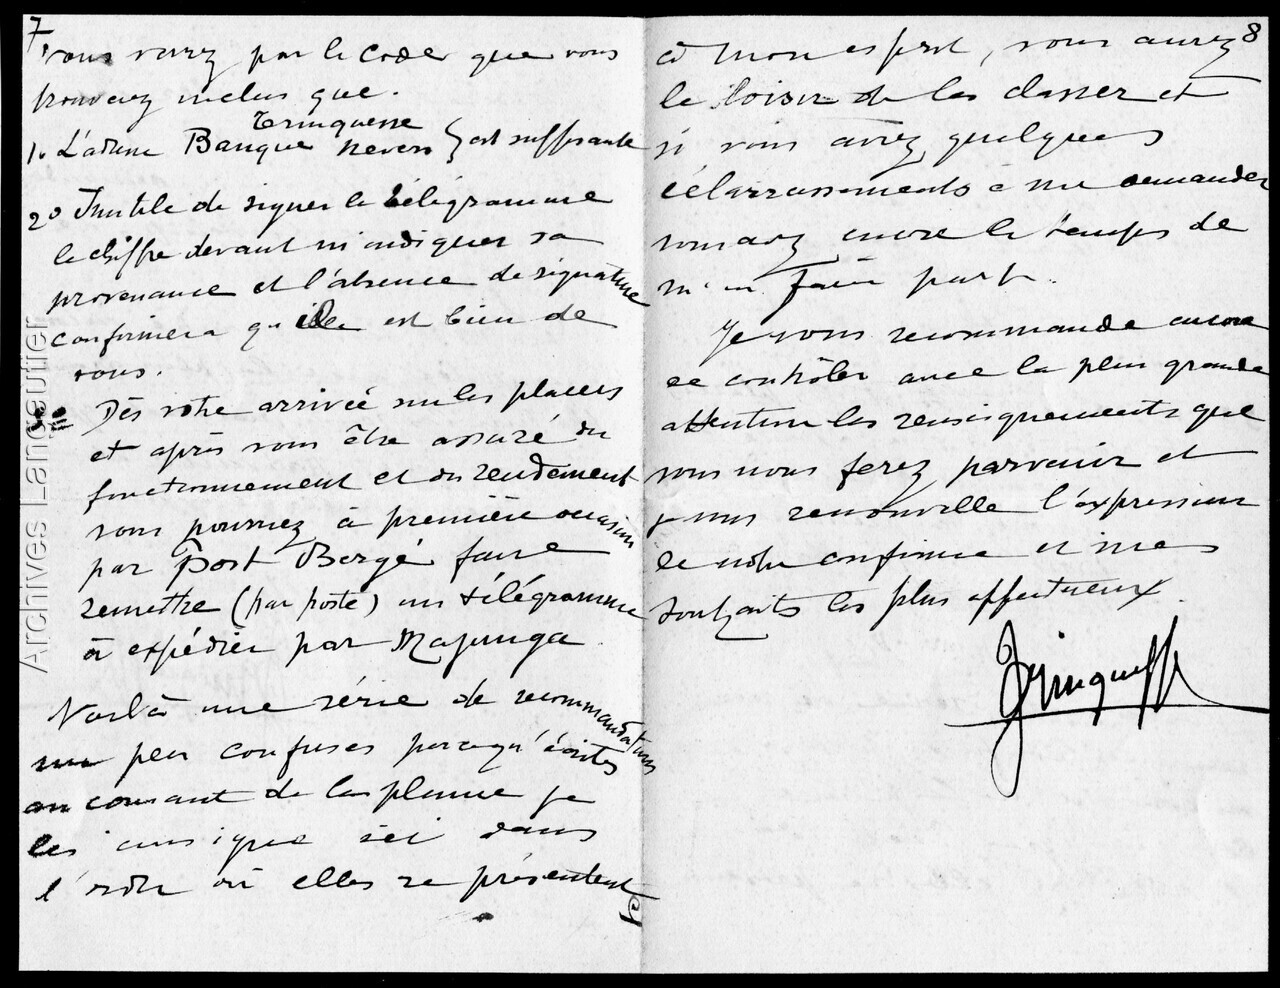 7
vous verrez par le code que vous
trouverez inclus que.
1° L'adresse Banque Trinquesse Nevers } est suffisante
2° Inutile de signer le télégramme
le chiffre devant m'indiquer sa
provenance et l'absence de signature
confirmera qu'il est bien de
vous.
Dès votre arrivée sur les placers
et après vous être assuré du
fonctionnement et du rendement
vous pourrez à première occasion
par Port Bergé faire
remettre (par poste) un télégramme
à expédier par Majunga.
Voilà une série de recommandations
un peu confuses puisqu'écrites
au courant de la plume je
les consigne ici dans
l'ordre où elles se présentent
8
à mon esprit, vous aurez
le loisir de les classer et
si vous avez quelques
éclaircissements à me demander
vous avez encore le temps de
m'en faire part.
Je vous recommande encore
de contrôler avec la plus grande
attention les renseignements que
vous nous ferez parvenir et
je vous renouvelle l'expression
de notre confiance et mes
souhaits les plus affectueux.
Trinquesse
Archives Langlautier